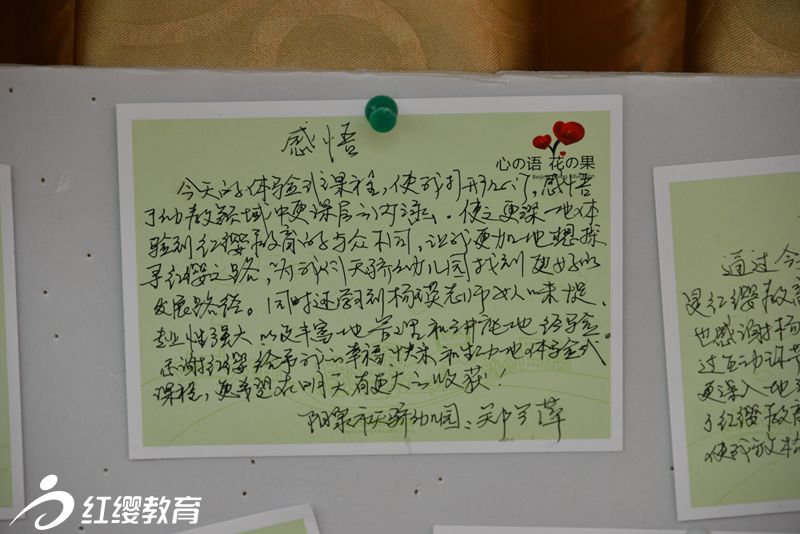 感悟
心の语 花の果
今天的体验式课程,使我打开心门,感悟
了幼教领域中更深层的内涵。使之更深地体
验到红缨教育的与众不同,让我更加地想探
寻红缨之路,为我们天骄幼儿园找到更好的
发展路径。同时还学到杨瑛老师
专业性强大以及丰富地 和 经验。
感谢红缨给予我的幸福快来和生动地体验式
课程,更希望在明天有更大的收获!
阳泉市天骄幼儿园:郑
通过今
灵红缨教育
也感谢杨
过互动环节
更深入地
了红缨教育
使我放
红缨教育